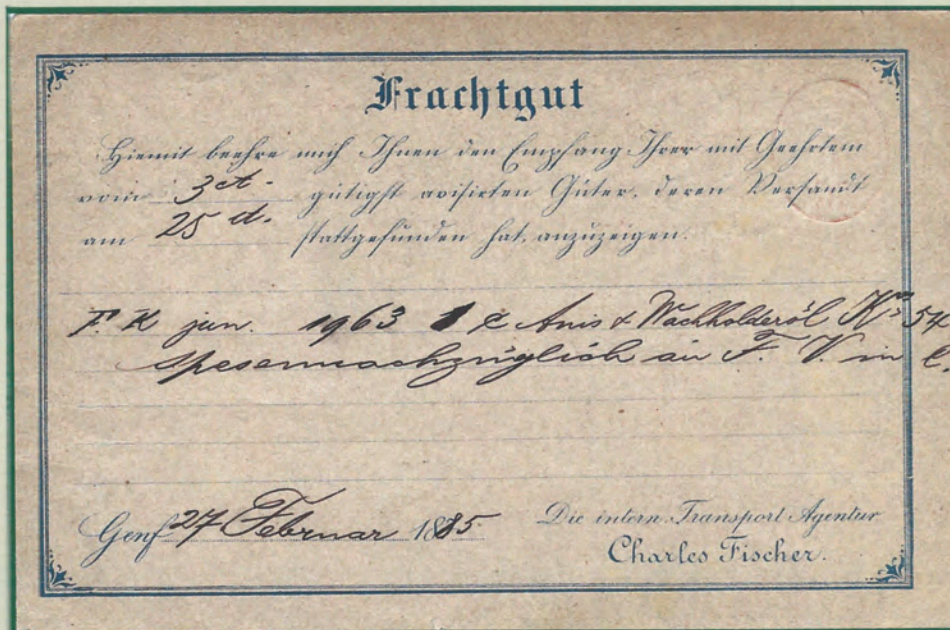 Frachtgut
Hiemit beehre mich Ihnen den Empfang Ihrer mit Geehrtem
vom 3 ct. gütigst avisirten Güter, deren Versandt
am 25 d. stattgefunden hat, anzuzeigen.
F. K jun. 1963 1 Anis & Wachholderöl K° 54
spesennachzüglich an F. V. in C.
Genf 27 Februar 1885
Die intern. Transport Agentur
Charles Fischer.